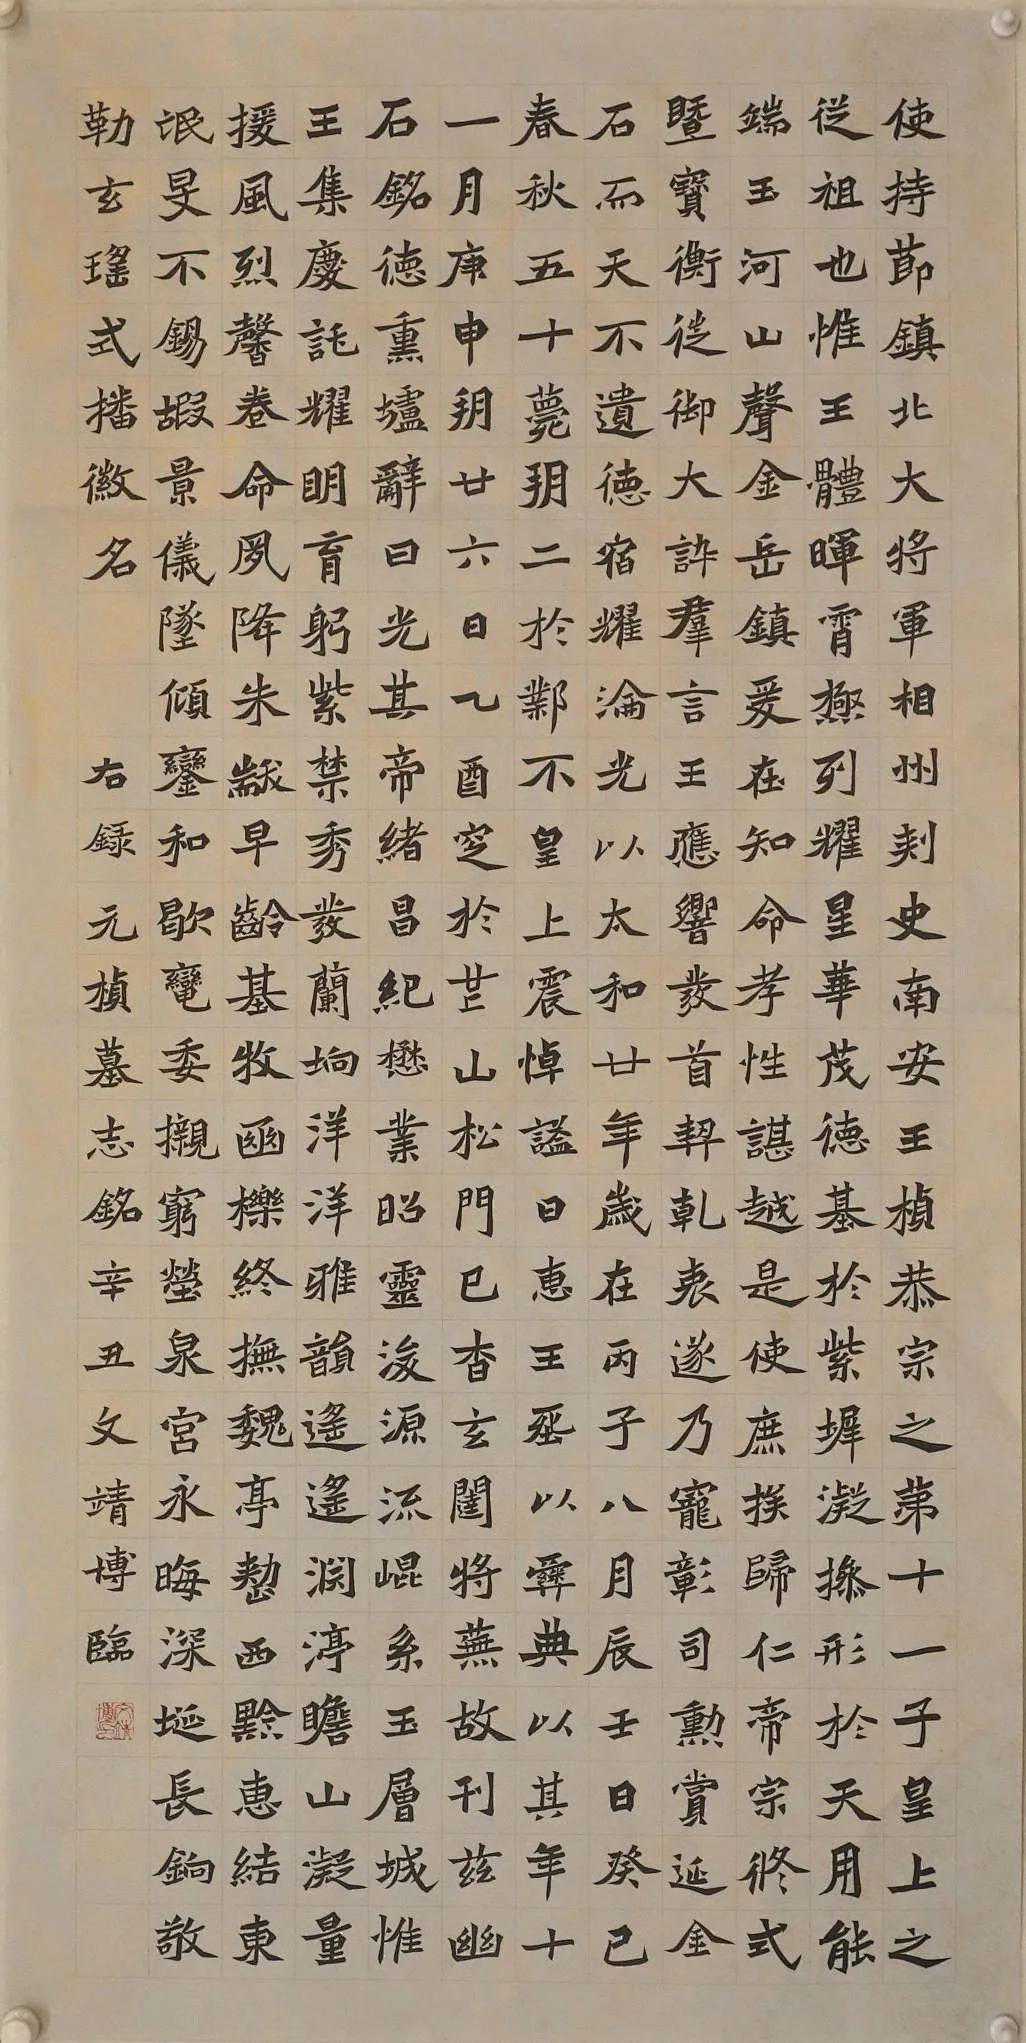 使持節鎮北大將軍相州刺史南安王楨恭宗之第十一子皇上之
從祖也惟王體暉霄極列耀星華茂德基於紫墀凝操形於天用能
端玉河山聲金岳鎮爰在知命孝性諶越是使庶族歸仁帝宗攸式
暨寶衡徙御大訊羣言王應響發首契乾衷遂乃寵彰司勳賞延金
石而天不遺德宿耀淪光以太和廿年歲在丙子八月壬辰日癸巳
春秋五十薨朔二於鄴不皇上震悼謚曰惠王丞以彝典以其年十
一月庚申朔廿六日乙酉窆於芒山松門已杳玄闥將蕪故刊茲幽
石銘德熏壚辭曰光其帝緒昌紀懋業昭靈浚源流崐系玉層城惟
王集慶託耀眀育躬紫禁秀發蘭坰洋洋雅韻遙遙淵渟瞻山凝量
援風烈馨卷命夙降朱黻早齡基牧函櫟終撫魏亭勢西黔惠結東
泯旻不錫嘏景儀墜傾鑾和歇鼋委櫬窮塋泉宮永晦深埏長鉤敬
勒玄瑤式播徽名
右錄元楨墓志銘辛丑文靖博臨